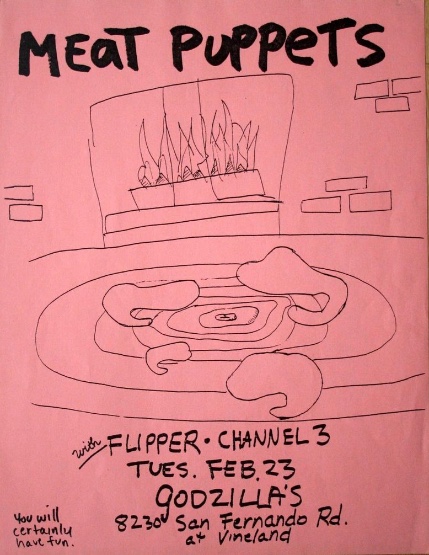 MEAT PUPPETS
with FLIPPER • CHANNEL 3
TUES. FEB. 23
GODZILLA'S
8230 San Fernando Rd.
at Vineland
You will
certainly
have fun.